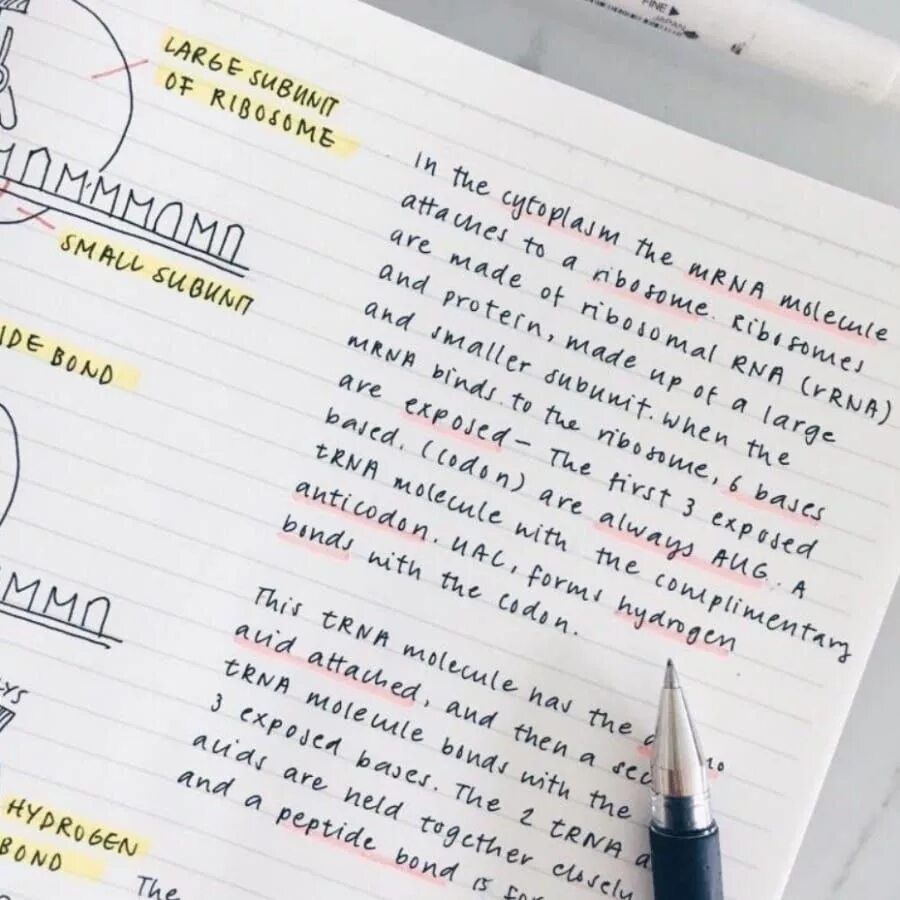 FINE
JAPAN
LARGE SUBUNIT
OF RIBOSOME
SMALL SUBUNIT
IDE BOND
YS
HYDROGEN
BOND
In the cytoplasm the mRNA molecule
attaches to a ribosome. Ribosomes
are made of ribosomal RNA (rRNA)
and protein, made up of a large
and smaller subunit. When the
mRNA binds to the ribosome, 6 bases
are exposed – The first 3 exposed
based. (codon) are always AUG. A
tRNA molecule with the complimentary
anticodon. UAC, forms hydrogen
bonds with the codon.
This tRNA molecule has the
acid attached, and then a sec
tRNA molecule bonds with the
3 exposed bases. The 2 tRNA a
acids are held together closely
and a peptide bond is for
The